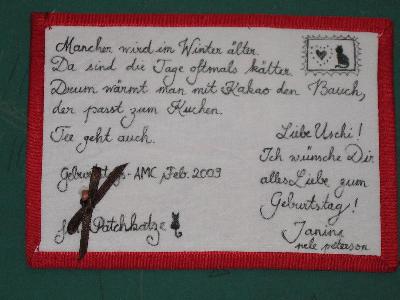 Mancher wird im Winter älter.
Da sind die Tage oftmals kälter.
Drum wärmt man mit Kakao den Bauch,
der passt zum Kuchen.
Tee geht auch.
Geburtstags-AMC Feb. 2009
Patchkatze
Liebe Uschi!
Ich wünsche Dir
alles Liebe zum
Geburtstag!
Janine
nele peterson